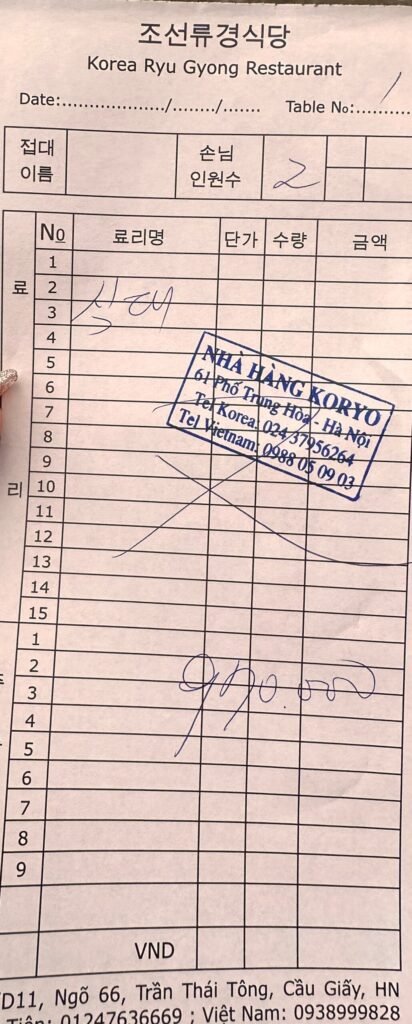 조선류경식당
Korea Ryu Gyong Restaurant
Date:.................../......../....... Table No:..........
1
접대
이름
손님
인원수
2
No 료리명 단가 수량 금액
료
리
1
2
3
식대
4
5
6
7
8
9
10
11
12
13
14
15
NHÀ HÀNG KORYO
61 Phố Trung Hoa - Hà Nội
Tel Korea: 024 37956264
Tel Vietnam: 0988 05 09 03
1
2
3
970.000
4
5
6
7
8
9
VND
D11, Ngõ 66, Trần Thái Tông, Cầu Giấy, HN
Tiên: 01247636669 ; Việt Nam: 0938999828